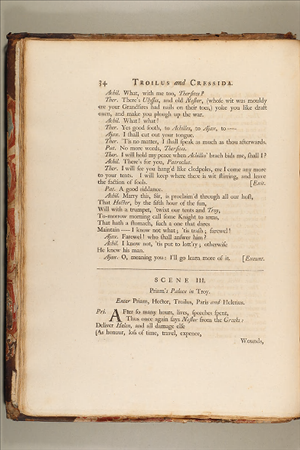 34 TROILUS and CRESSIDA.
Achil. What, with me too, Thersites?
Ther. There's Ulysses, and old Nestor, (whose wit was mouldy
ere your Grandsires had nails on their toes,) yoke you like draft
oxen, and make you plough up the war.
Achil. What! what!
Ther. Yes good sooth, to Achilles, to Ajax, to ——
Ajax. I shall cut out your tongue.
Ther. 'Tis no matter, I shall speak as much as thou afterwards.
Pat. No more words, Thersites.
Ther. I will hold my peace when Achilles' brach bids me, shall I?
Achil. There's for you, Patroclus.
Ther. I will see you hang'd like clodpoles, ere I come any more
to your tents. I will keep where there is wit stirring, and leave
the faction of fools. [Exit.
Pat. A good riddance.
Achil. Marry this, Sir, is proclaim'd through all our host,
That Hector, by the fifth hour of the sun,
Will with a trumpet, 'twixt our tents and Troy,
To-morrow morning call some Knight to arms,
That hath a stomach, such a one that dares
Maintain —— I know not what; 'tis trash; farewel!
Ajax. Farewel! who shall answer him?
Achil. I know not, 'tis put to lott'ry; otherwise
He knew his man.
Ajax. O, meaning you: I'll go learn more of it. [Exeunt.
SCENE III.
Priam's Palace in Troy.
Enter Priam, Hector, Troilus, Paris and Helenus.
Pri. AFter so many hours, lives, speeches spent,
Thus once again says Nestor from the Greeks:
Deliver Helen, and all damage else
(As honour, loss of time, travel, expence,
Wounds,